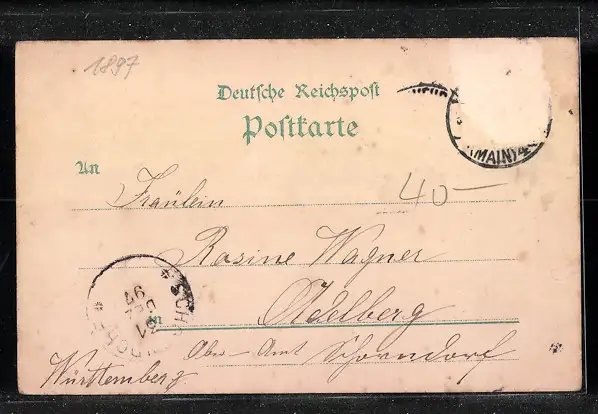 1897
Deutsche Reichspost
Postkarte
(MAIN)
An
Fräulein
40—
Rosine Wagner
in Adelberg
Ober-Amt Schorndorf
Württemberg
DEZ
97